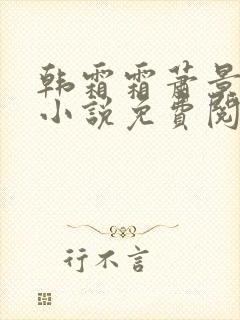 韩霜霜萧景
小说免费阅
行不言